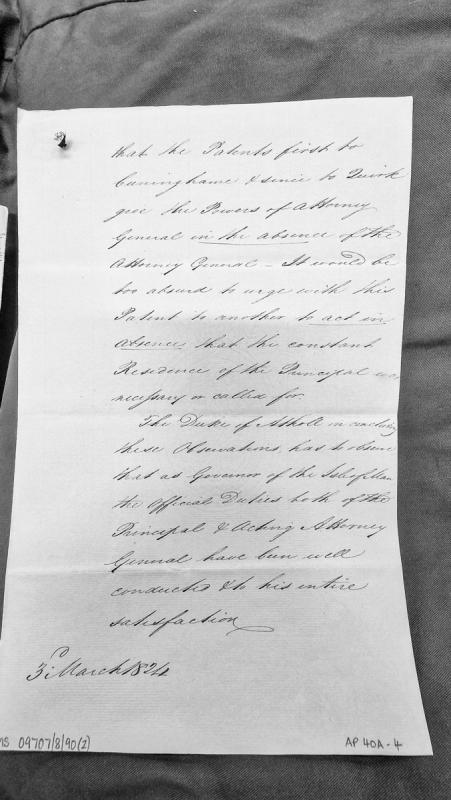 that the Patents first to
Cuninghame & since to Quirk
give the Powers of Attorney
General in the absence of the
Attorney General – It would be
too absurd to urge with this
Patent to another to act in
absence, that the constant
Residence of the Principal was
necessary or called for.
The Duke of Atholl in concluding
these Observations, has to observe
that as Governor of the Isle of Man
the Official Duties both of the
Principal & Acting Attorney
General have been well
conducted & to his entire
satisfaction
3d March 1824
MS 09707/8/90(2)
AP 40A-4